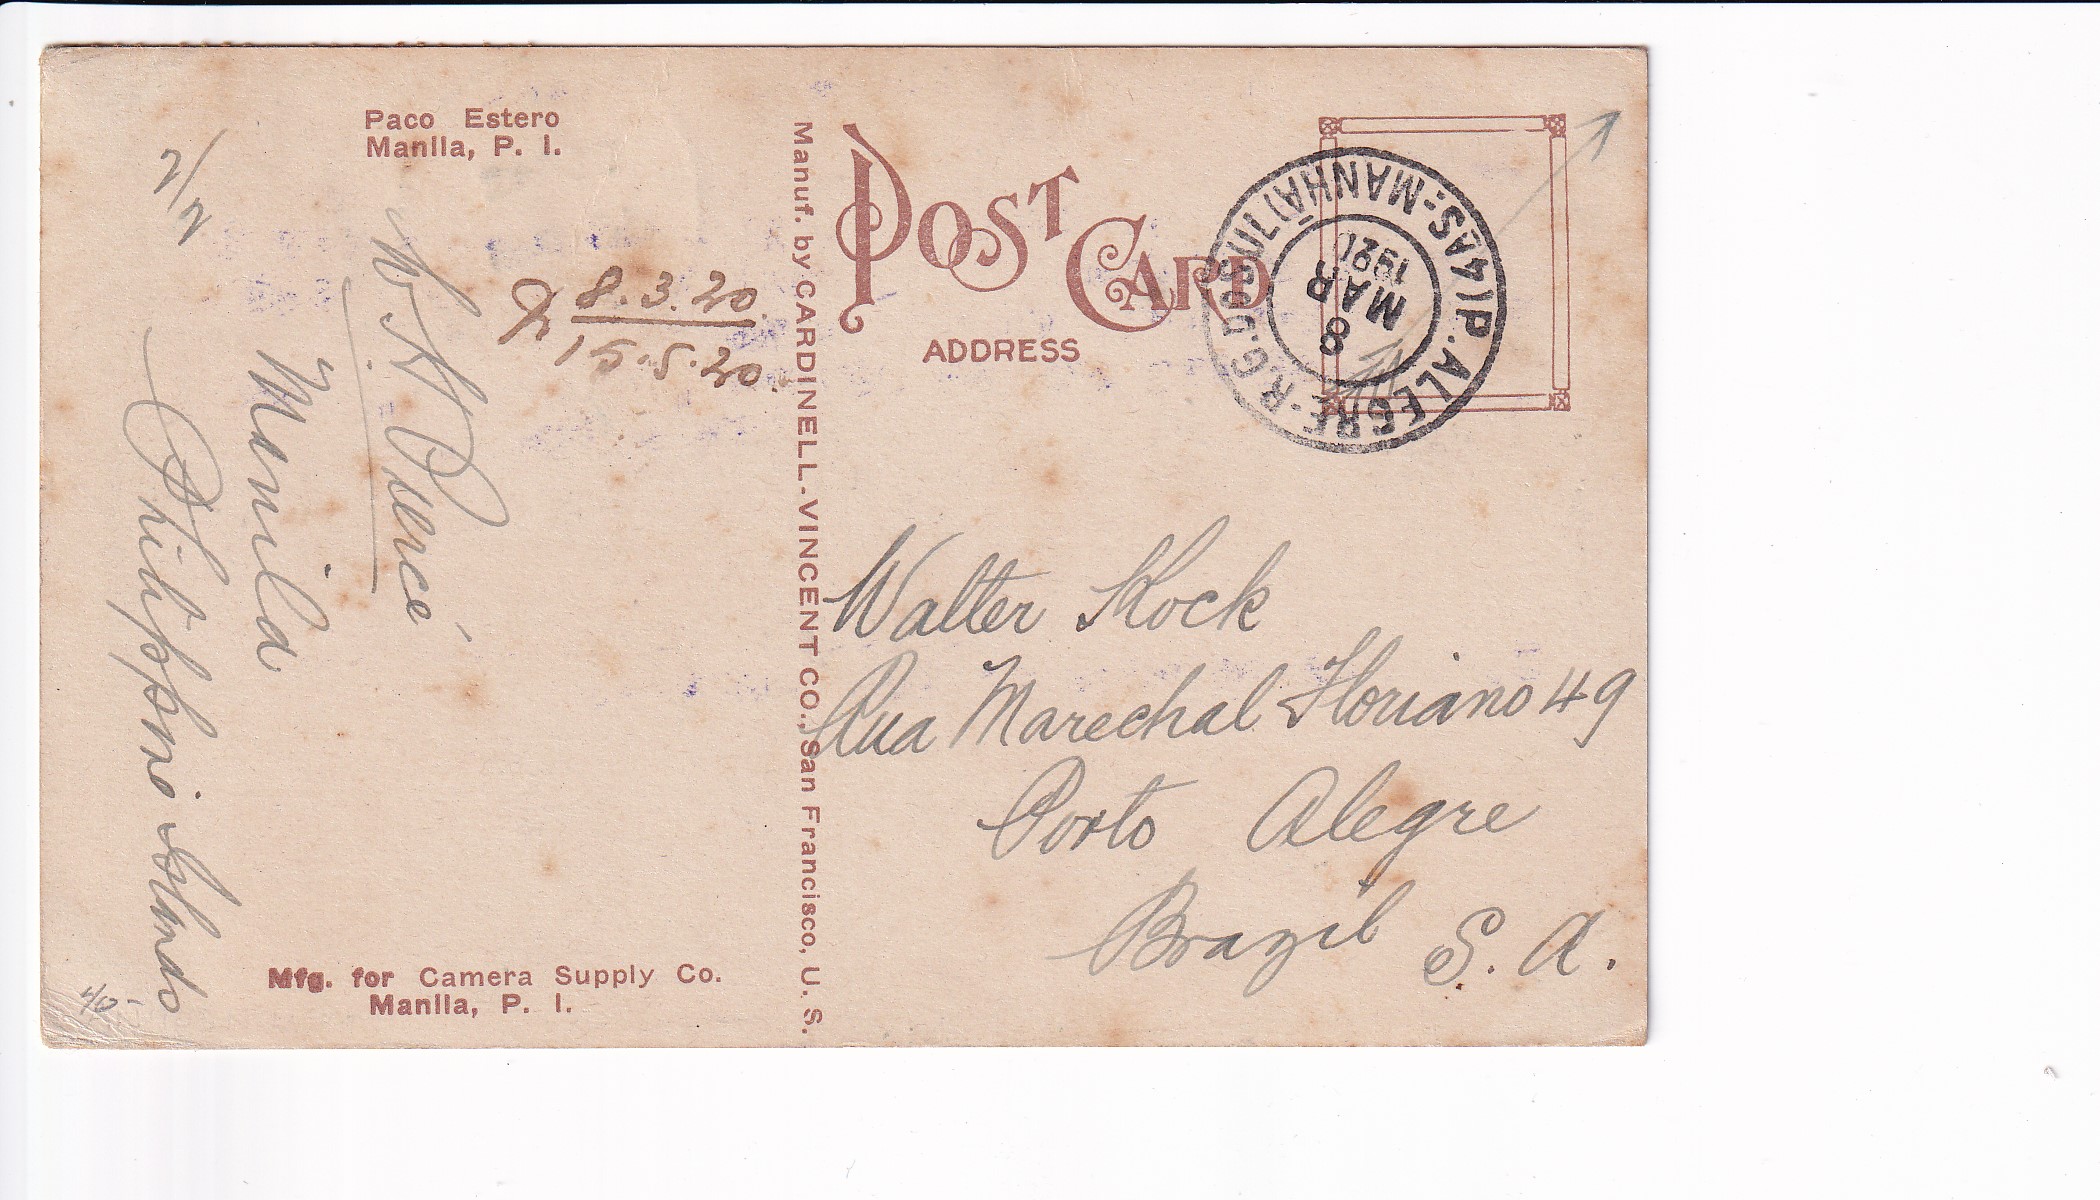 Paco Estero
Manila, P. I.
2/2
W. H.
Manila
Philippine Islands
8.3.20.
15.5.20.
Mfg. for Camera Supply Co.
Manila, P. I.
Manuf. by CARDINELL-VINCENT CO., San Francisco, U. S.
POST CARD
ADDRESS
P. ALEGRE-R.G.DO SUL (1ª
(4AS-MANHÃ)
8
MAR
1920
Walter Kock
Rua Marechal Floriano 49
Porto Alegre
Brazil S. A.